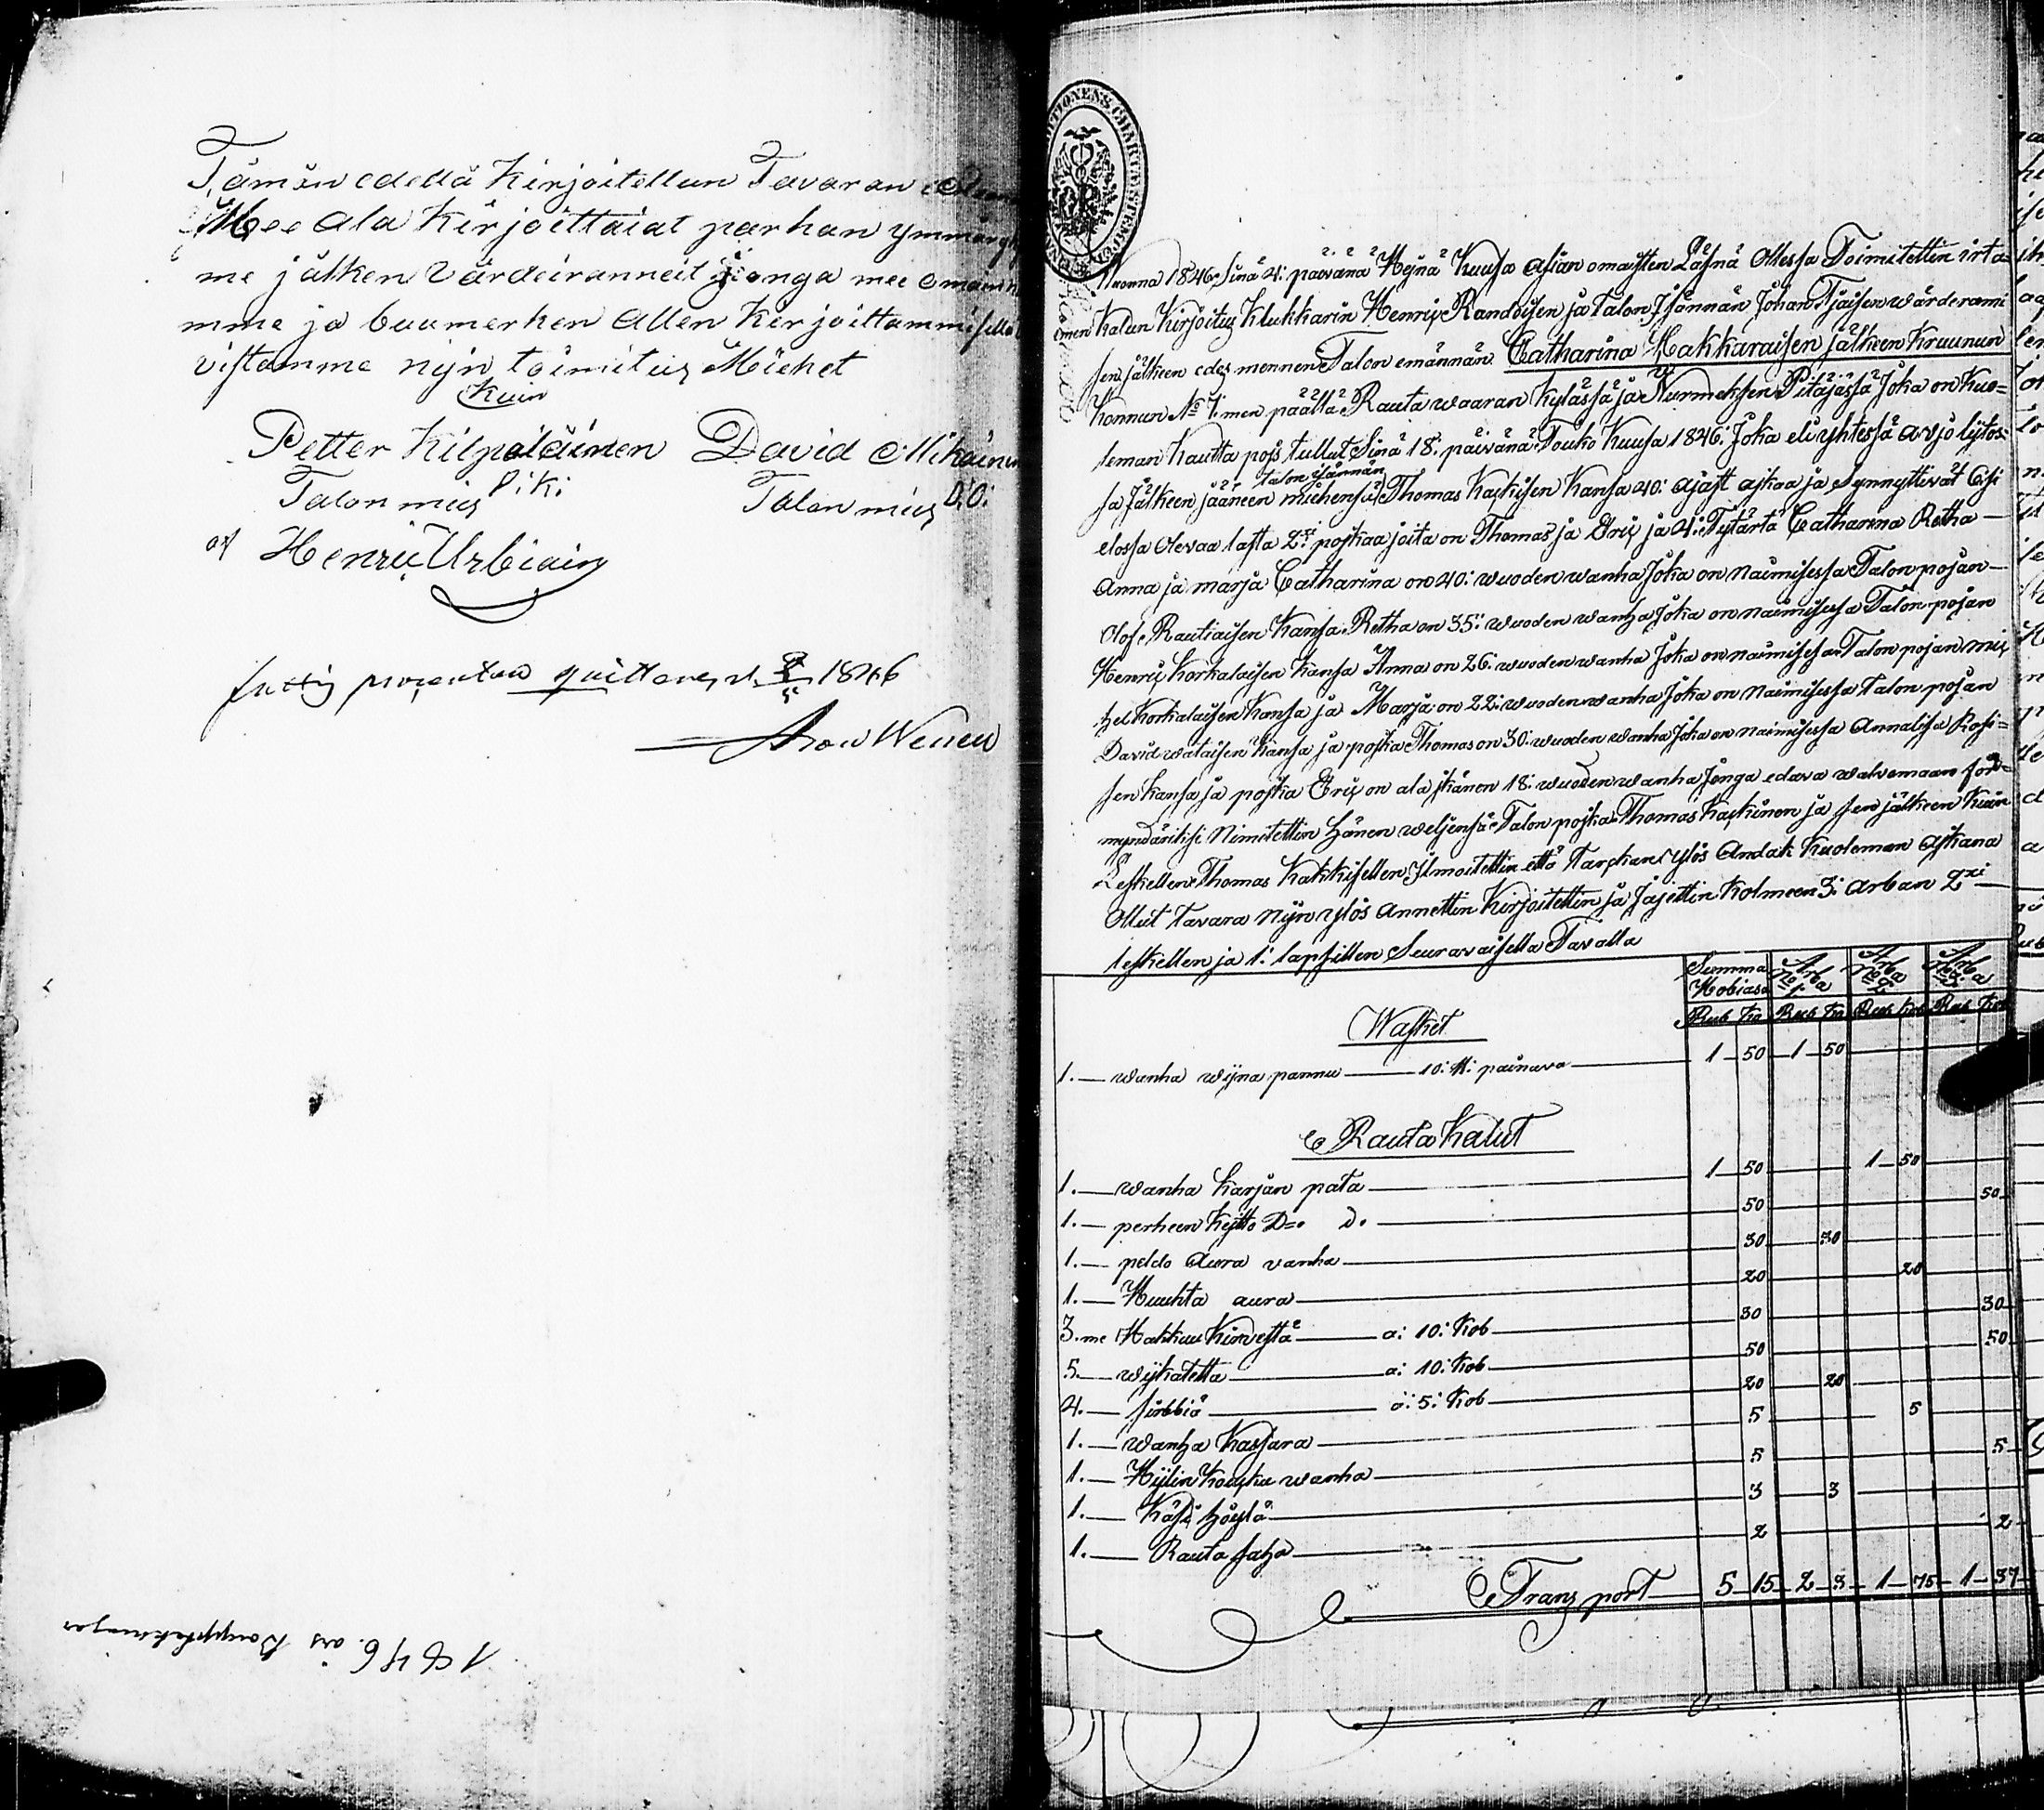 Tämän edellä Kirjoitellun Tavaran
Mee ala Kirjoittaiat parhan ymmärys
me jälken Värdeiranneit jonga mee omam
mme ja buumerken Allen Kirjoittammisella
vistamme nijn toimitus Miehet
Kuin
Petter Kilpeläinen David Mikäinen
Talon mies P:K: Talon mies D:O:
af Henric Urbiain
fattig procenten quitteras d. 1846
1846 års Bouppteckningar
Wuonna 1846: Sinä 4: päivänä Hejnä Kuusa Asian omaisten Läsnä Ollessa Toimitettin irta=
imen Kalun Kirjoitus Klukkarin Henric Randoisen ja Talon Isännän Johan Tjaisen wärderami
sen jälkeen edes mennen Talon emännän Catharina Hakkaraisen jälkeen Kruunun
Konnun No 7: men päältä Rauta waaran Kylässä ja Nurmeksen Pitäjässä Joka on Kuo=
leman Kautta pois tullut Sinä 18: päivänä Touko Kuusa 1846: Joka eli yhtessä avjo lijtos:
talon isännän
sa Jälkeen jääneen miehensä Thomas Kaskisen Kansa 40: ajast ajkaa ja Synnyttivät Cisi
elossa Olevaa lasta 2:xi pojkaa joita on Thomas ja Eric ja 4: Tytärtä Catharina Retha —
Anna ja marja Catharina on 40: wuoden wanha Joka on naimisessa Talon pojan —
Olof Rautiaisen Kansa Retha on 35: wuoden wanha Joka on naimisessa Talon pojan
Henric Korkalaisen Kansa Anna on 26: wuoden wanha Joka on naimisessa Talon pojan mic
hel Korkalaisen Kansa ja Marja on 22: wuoden wanha Joka on naimisessa Talon pojan
David wataisen Kansa ja pojka Thomas on 30: wuoden wanha Joka on naimisessa Annalisa Rosi=
sen Kansa ja pojka Eric on ala jkänen 18: wuoden wanha Jonga edava walvomaan för=
myndäriksi Nimitettin hänen weljensä Talon pojka Thomas Kaskinen ja sen jälkeen Kuin
Leskellen Thomas Kakkisellen Ilmoitettin että Tarckan ylös Andak Kuoleman Ajkana
Ollut Tavara nijn ylös Annettin Kirjoitettin ja Jajettin Kolmeen 3: Arban 2:xi —
leskellen ja 1: lapsillen Seuravaisella Tavalla
Summa Hobiasa Arba No 1. Arba No 2. Arba No 3.
Rub Ko Rub Ko Rub Kob Rub Kob
Wasket
1. — wanha wijna pannu — 10: ℔: painava — 1 50 1 50
Rauta Kalut
1. — wanha Karjan pata — 1 50 1 50
1. — perheen Keitto Do do — 50 50
1. — peldo Aura vanha — 30 30
1. — Huuhta aura — 20 20
3. me Hakkuu Kirvestä — a: 10: Kob — 30 30
5. — wijkatetta — a: 10: Kob — 50 50
4. — sirbbiä — a: 5: Kob — 20 20
1. — wanha Kassara — 5 5
1. — Hijlin Koucku wanha — 5 5
1. — Käsi höylä — 3 3
1. — Rauta saha — 2 2
Transport 5 15 2 3 1 75 1 37